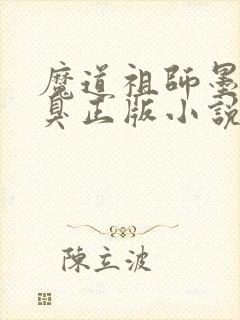 魔道祖師墨
臭正版小說
陳立波